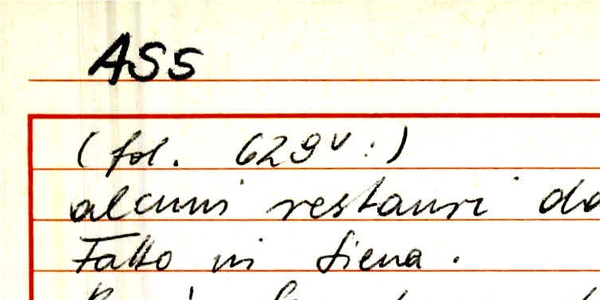 ASS
(fol. 629v:)
alcuni restauri
Fatto in Siena.